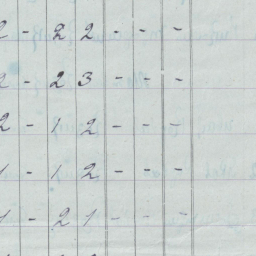 2 - 2 2 - - -
2 - 2 3 - - -
2 - 1 2 - - -
1 - 1 2 - - -
1 - 2 1 - - -